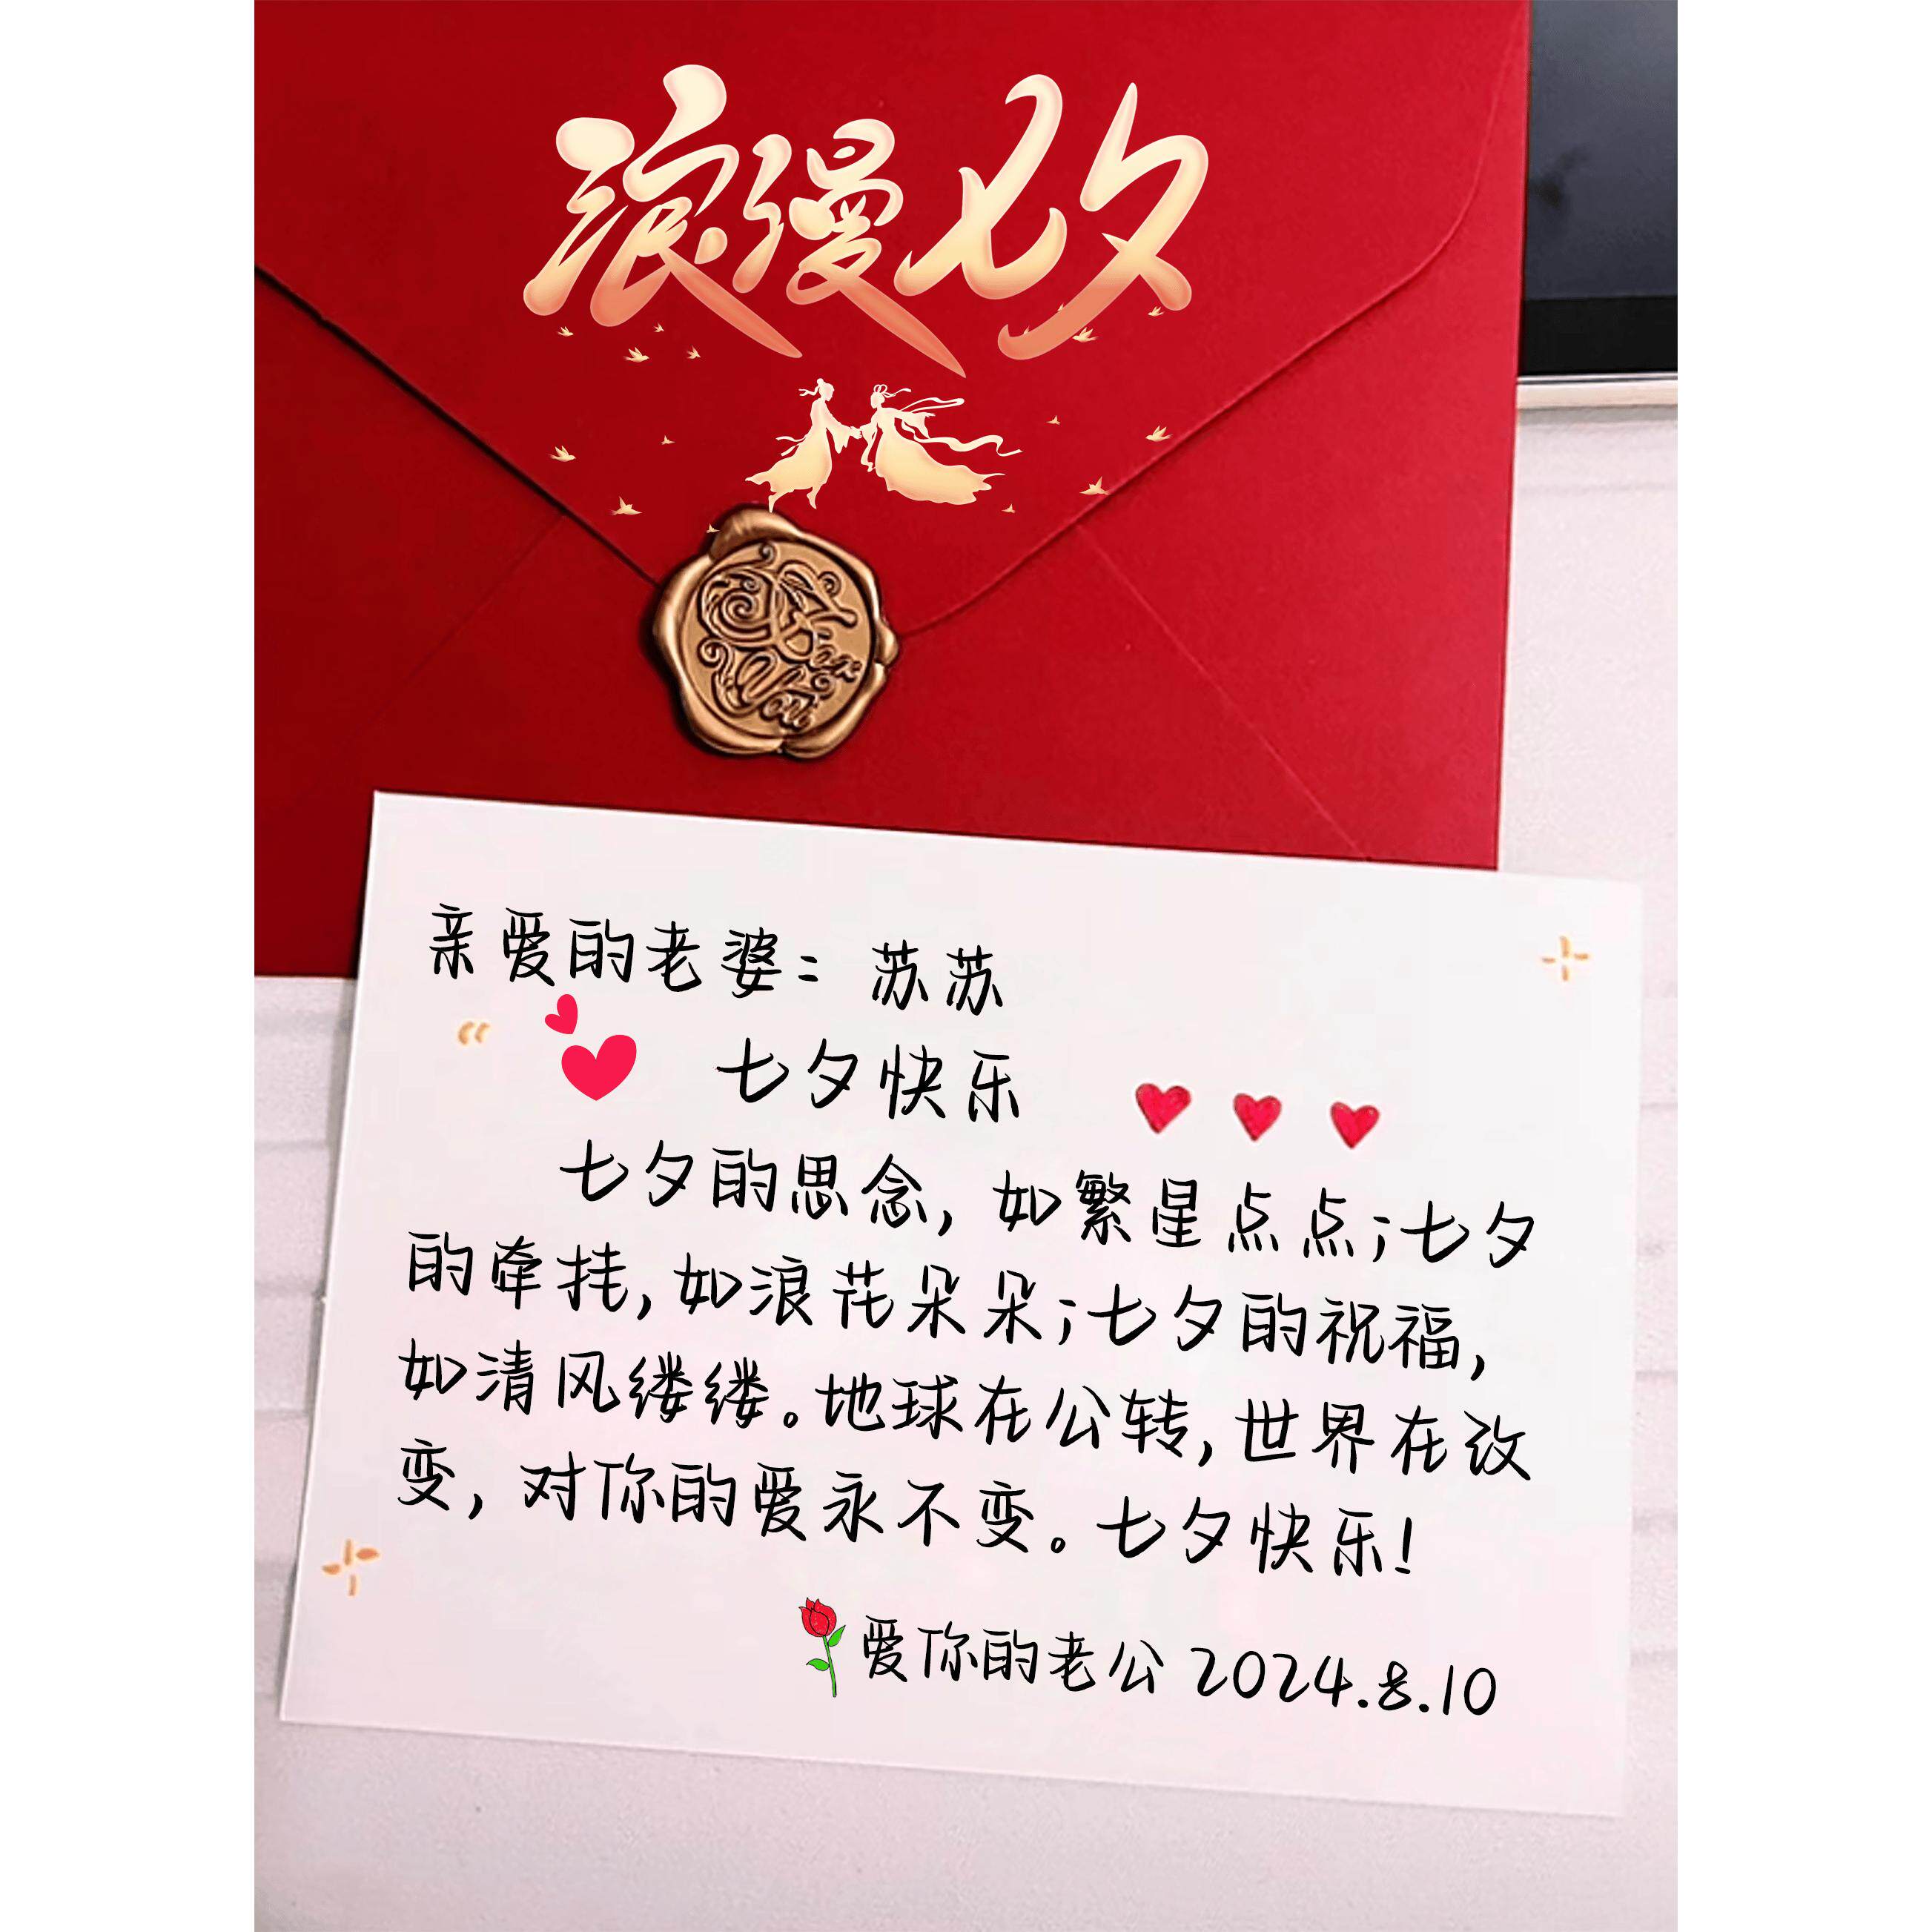 浪漫七夕
For
You
亲爱的老婆：苏苏
七夕快乐
七夕的思念，如繁星点点；七夕
的牵挂，如浪花朵朵；七夕的祝福，
如清风缕缕。地球在公转，世界在改
变，对你的爱永不变。七夕快乐！
爱你的老公 2024.8.10